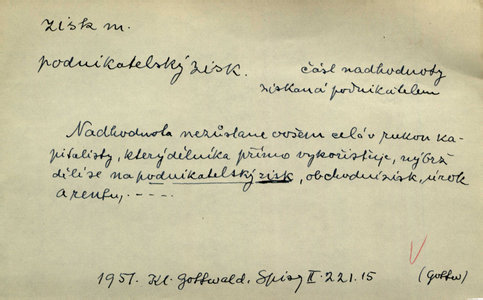 zisk m.
podnikatelský zisk.
část nadhodnoty
získaná podnikatelem
Nadhodnota nezůstane ovšem celá v rukou ka-
pitalisty, který dělníka přímo vykořisťuje, nýbrž
dělí se na podnikatelský zisk, obchodní zisk, úrok
a rentu, - - - -.
1951. Kl. Gottwald, Spisy II. 221.15
(Gottw)